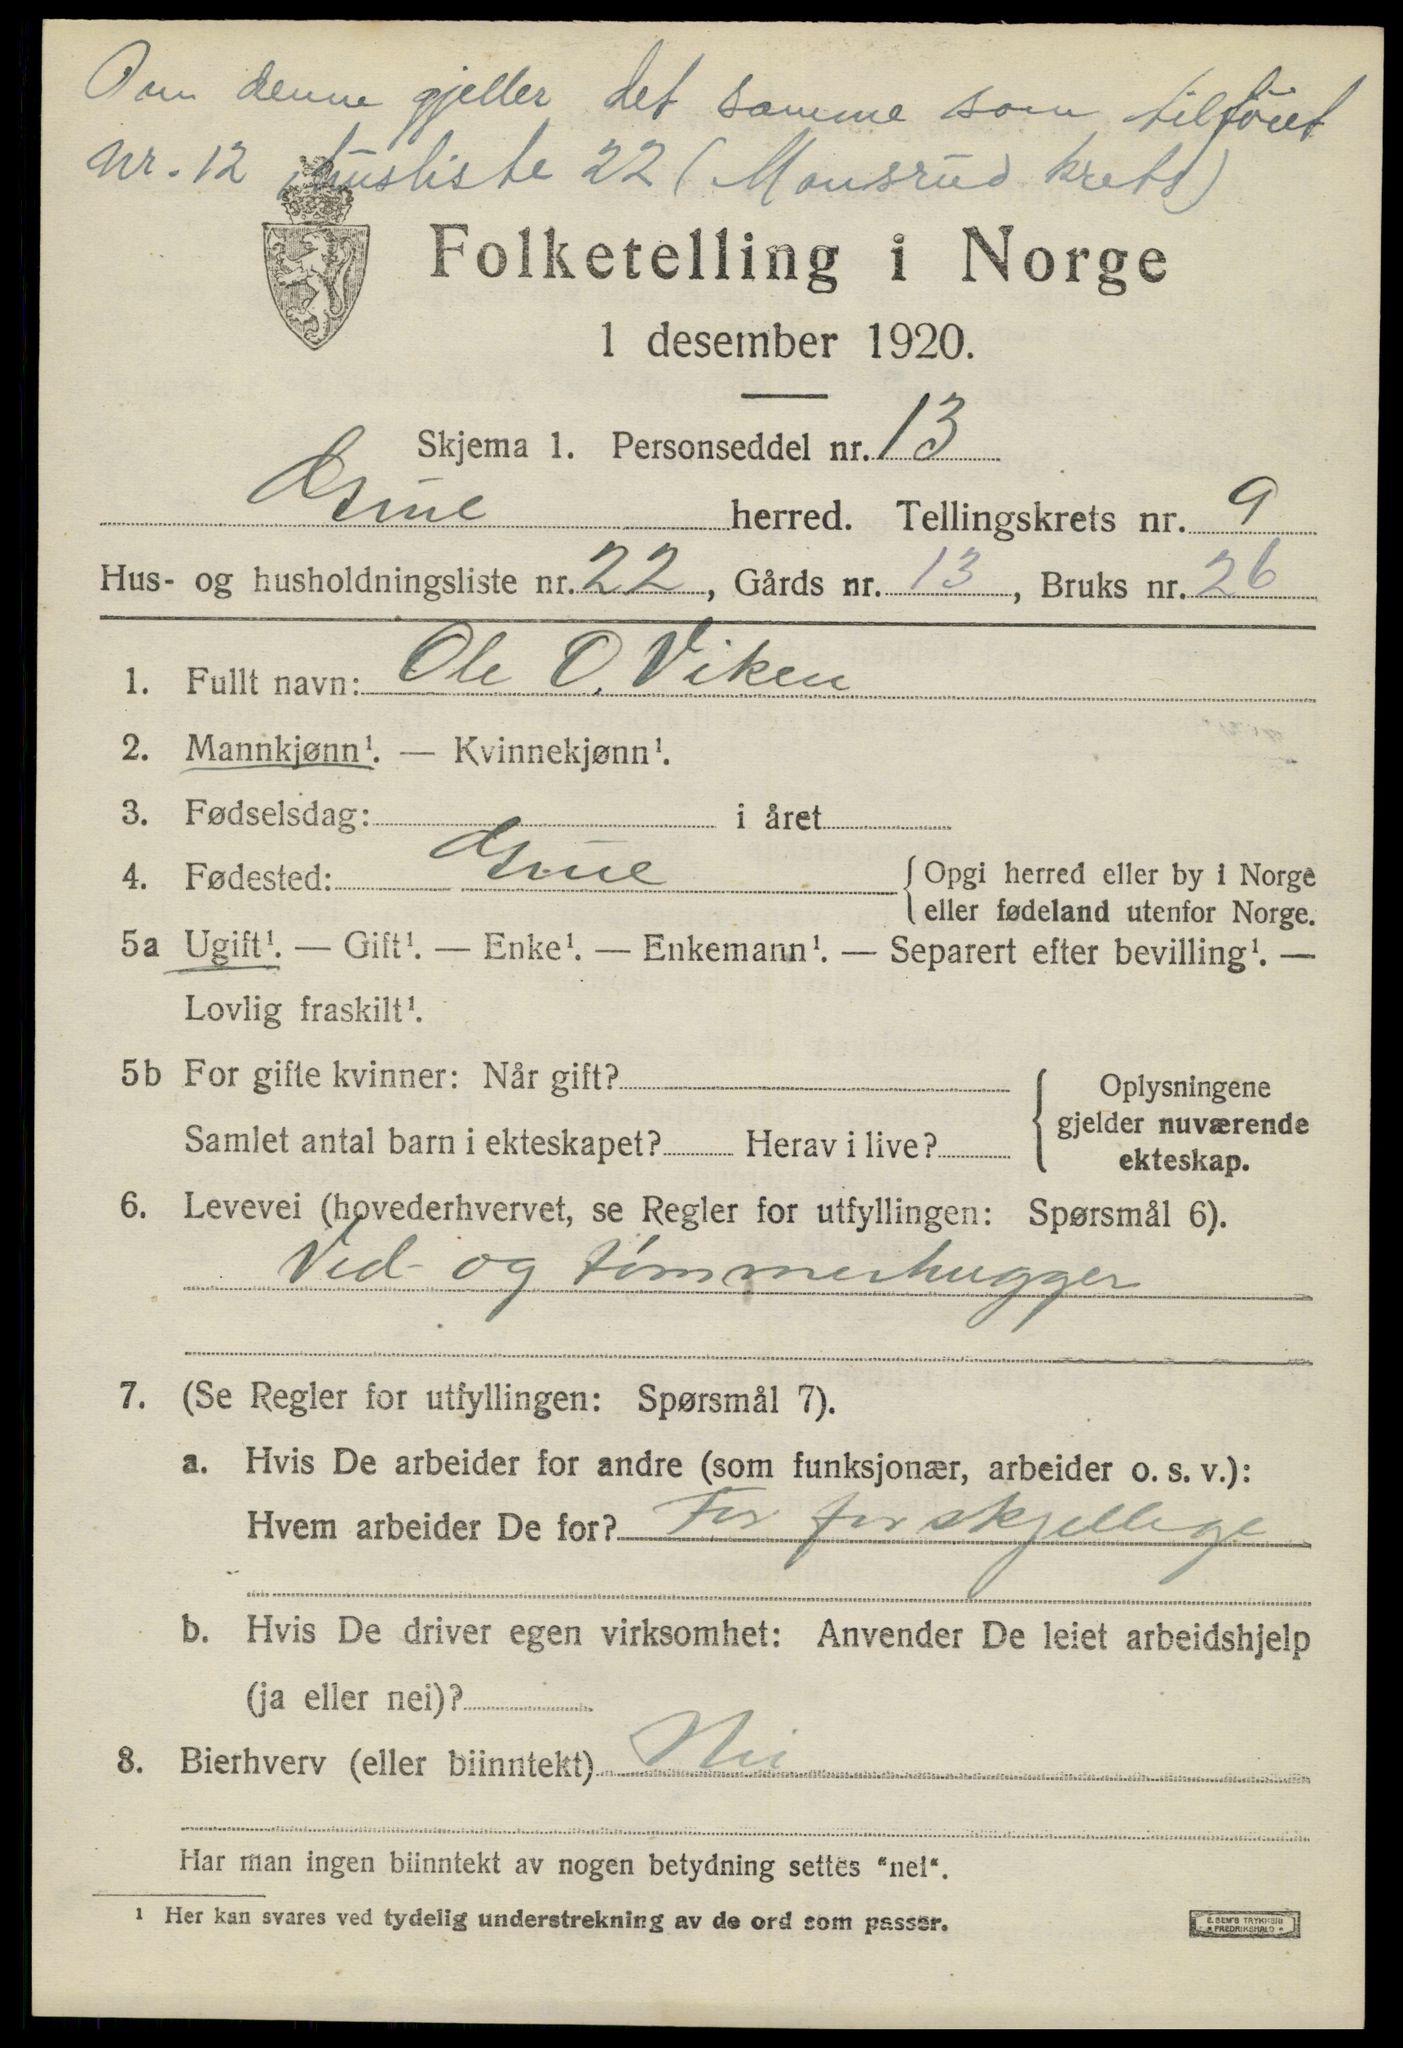 Om denne gjeller det samme som tilföiet
nr. 12 husliste 22 (Monsrud krets)
Folketelling i Norge
1 desember 1920.
Skjema 1. Personseddel nr. 13
Grue herred. Tellingskrets nr. 9
Hus- og husholdningsliste nr. 22, Gårds nr. 13, Bruks nr. 26
1. Fullt navn: Ole O. Viken
2. Mannkjønn¹. — Kvinnekjønn¹.
3. Fødselsdag: i året
4. Fødested: Grue { Opgi herred eller by i Norge
eller fødeland utenfor Norge.
5a Ugift¹. — Gift¹. — Enke¹. — Enkemann¹. — Separert efter bevilling¹. —
Lovlig fraskilt¹.
5b For gifte kvinner: Når gift? { Oplysningene
gjelder nuværende
Samlet antal barn i ekteskapet? Herav i live?
ekteskap.
6. Levevei (hovederhvervet, se Regler for utfyllingen: Spørsmål 6).
Ved- og tömmerhugger
7. (Se Regler for utfyllingen: Spørsmål 7).
a. Hvis De arbeider for andre (som funksjonær, arbeider o. s. v.):
Hvem arbeider De for? For forskjellige
b. Hvis De driver egen virksomhet: Anvender De leiet arbeidshjelp
(ja eller nei)?
8. Bierhverv (eller biinntekt) Nei
Har man ingen biinntekt av nogen betydning settes "nei".
¹ Her kan svares ved tydelig understrekning av de ord som passer.
E. SEM'S TRYKKERI
FREDRIKSHALD